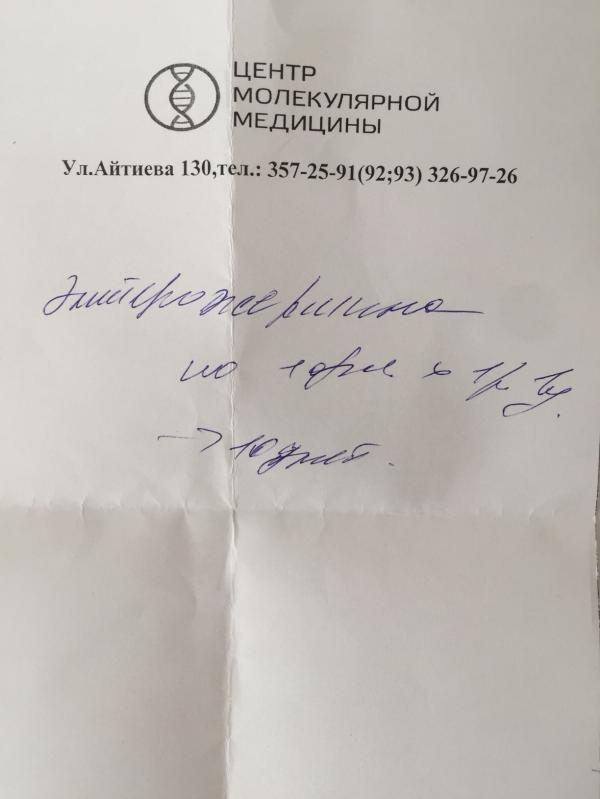 ЦЕНТР
МОЛЕКУЛЯРНОЙ
МЕДИЦИНЫ
Ул.Айтиева 130,тел.: 357-25-91(92;93) 326-97-26
Энтерожермина
по 1 фл х 1р
→ 10 дней.